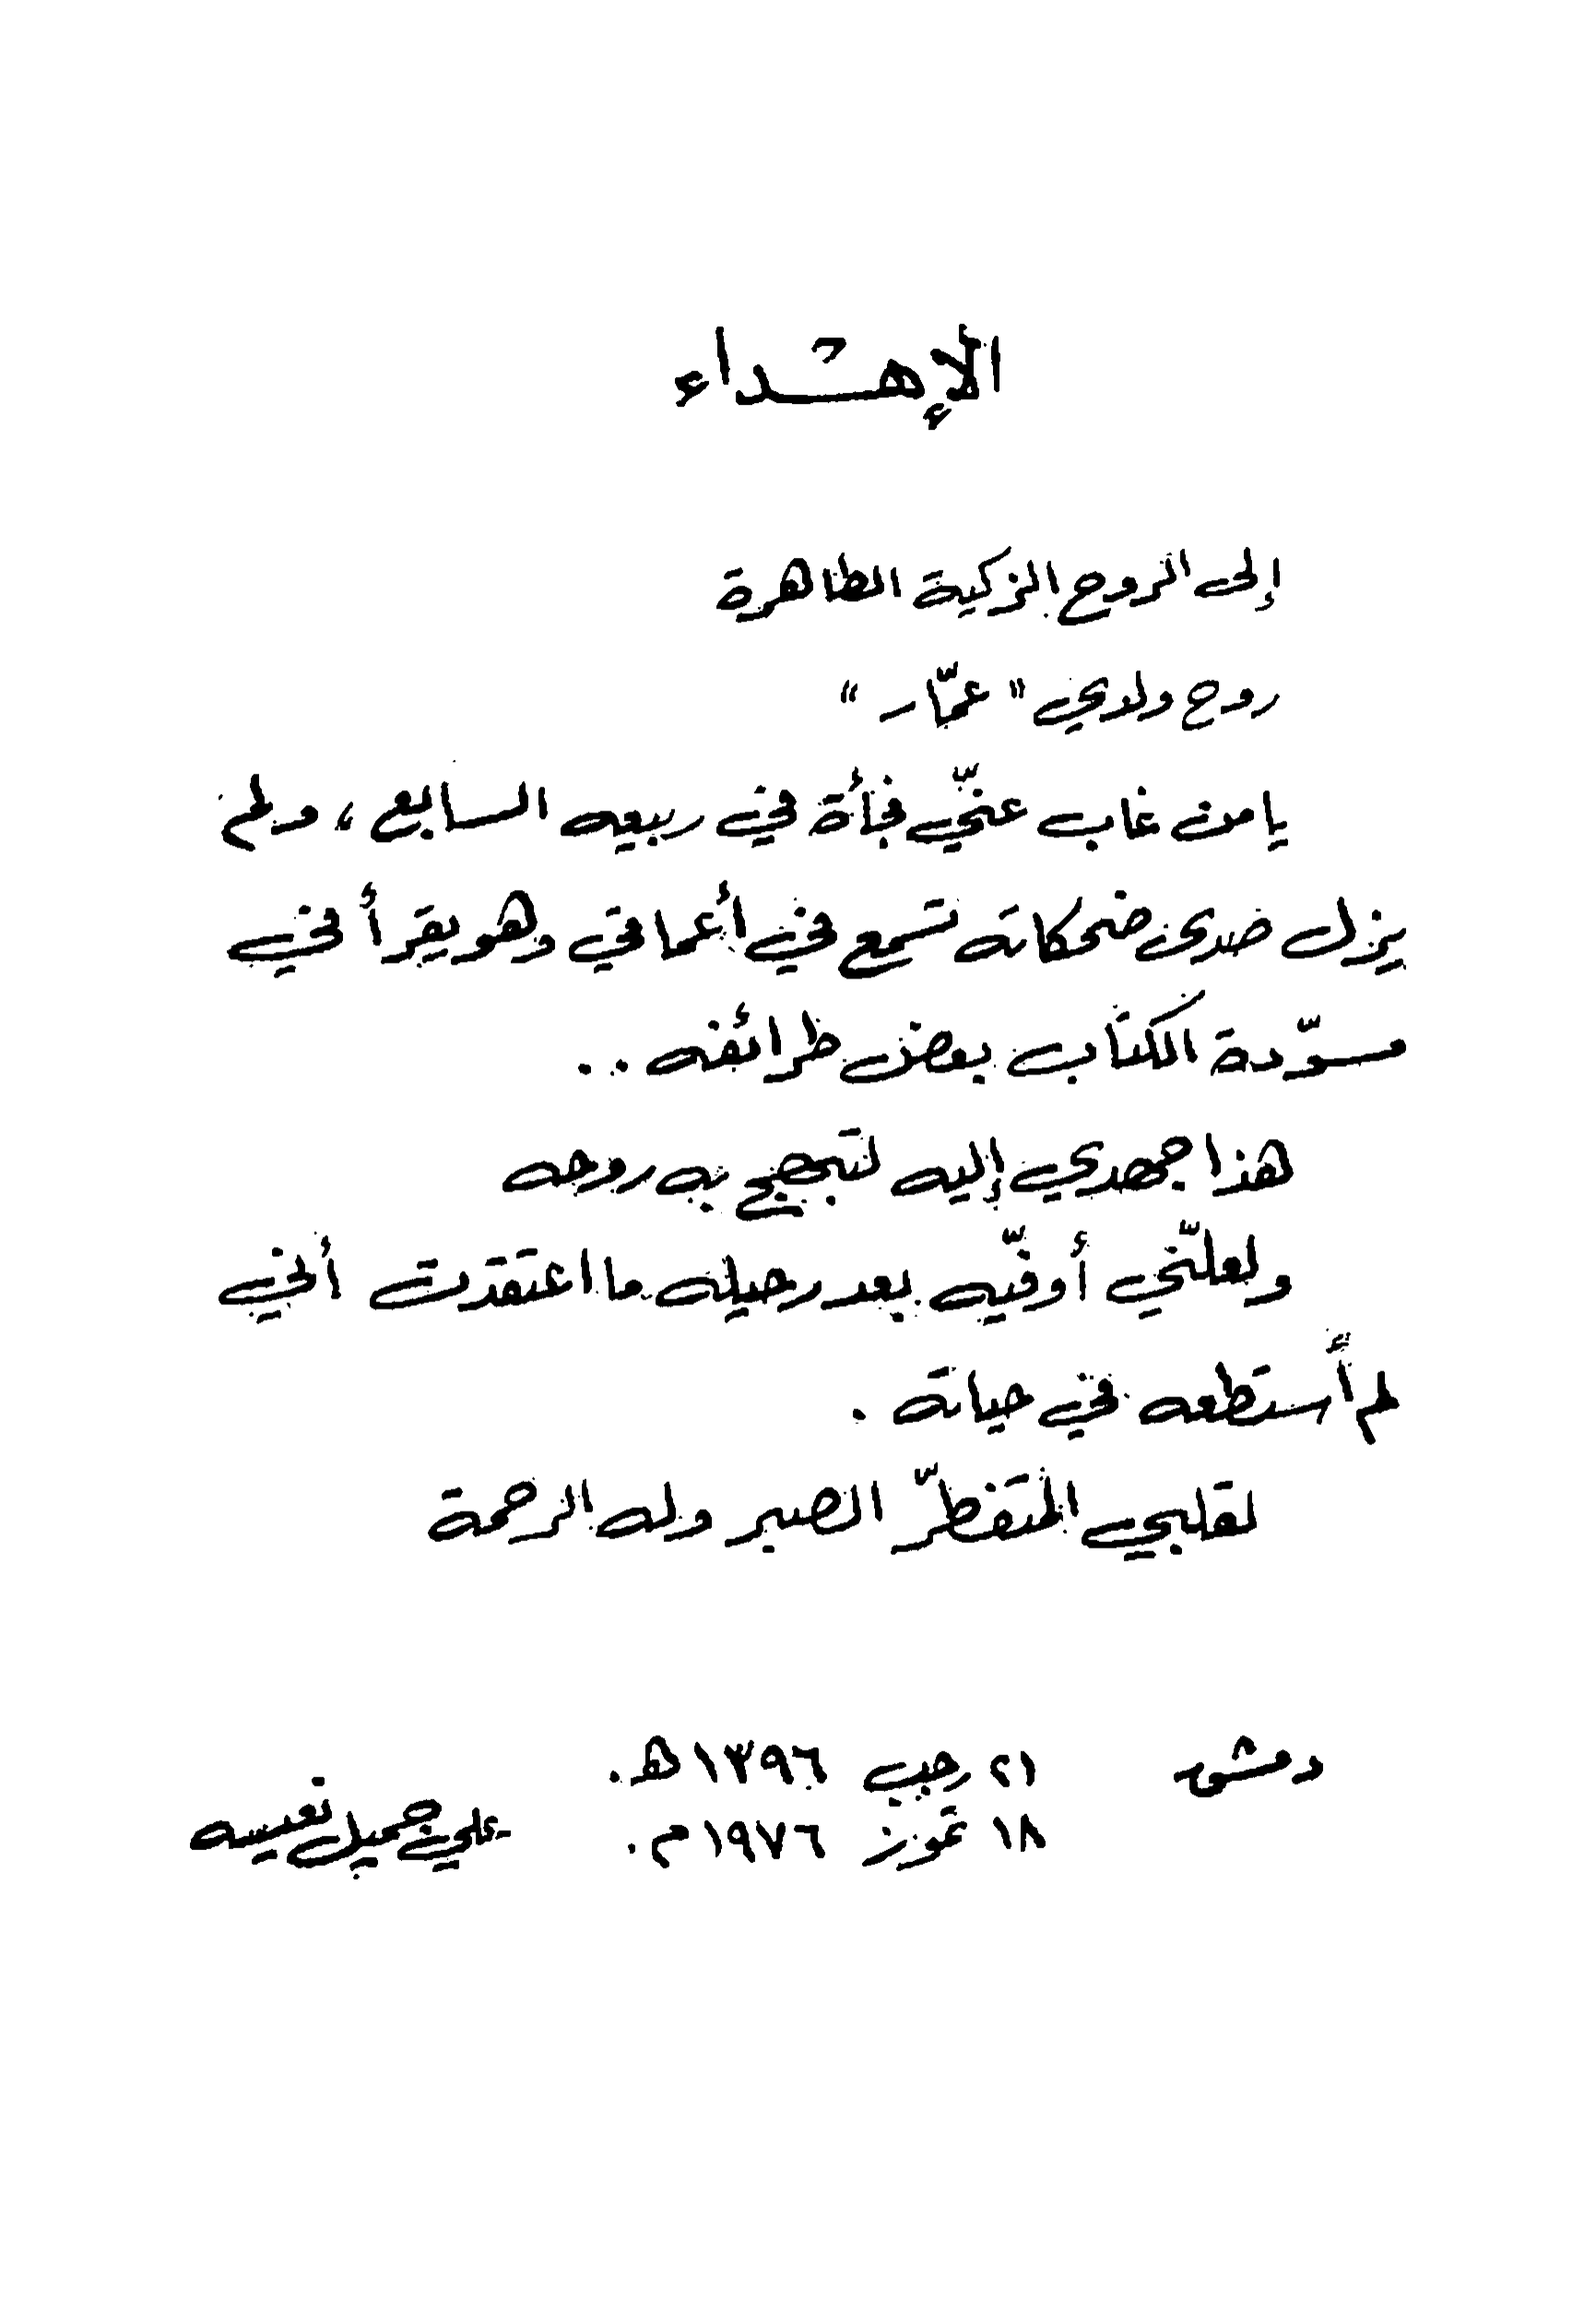 الإهداء
إلى الروح الزكية الطاهرة
روح ولدي "عمّار"
يا من غاب عنّي فجأة في ربيعه السابع، ولم
يزل صدى ضحكاته تسمع في أعماقي وهو يقرأ في
مسوّدة الكتاب بعض طرائفه ..
هذا جهدي إليه لتبهج به روحه
ولعلّني أوفّيه بعد رحيله ما اعتقدت أني
لم أستطعه في حياته .
لقلبي المتفطّر الصبر وله الرحمة
دمشق ٢١ رجب ١٣٩٦ هـ.
١٨ تموز ١٩٧٦ م. علي جميل نعيسه